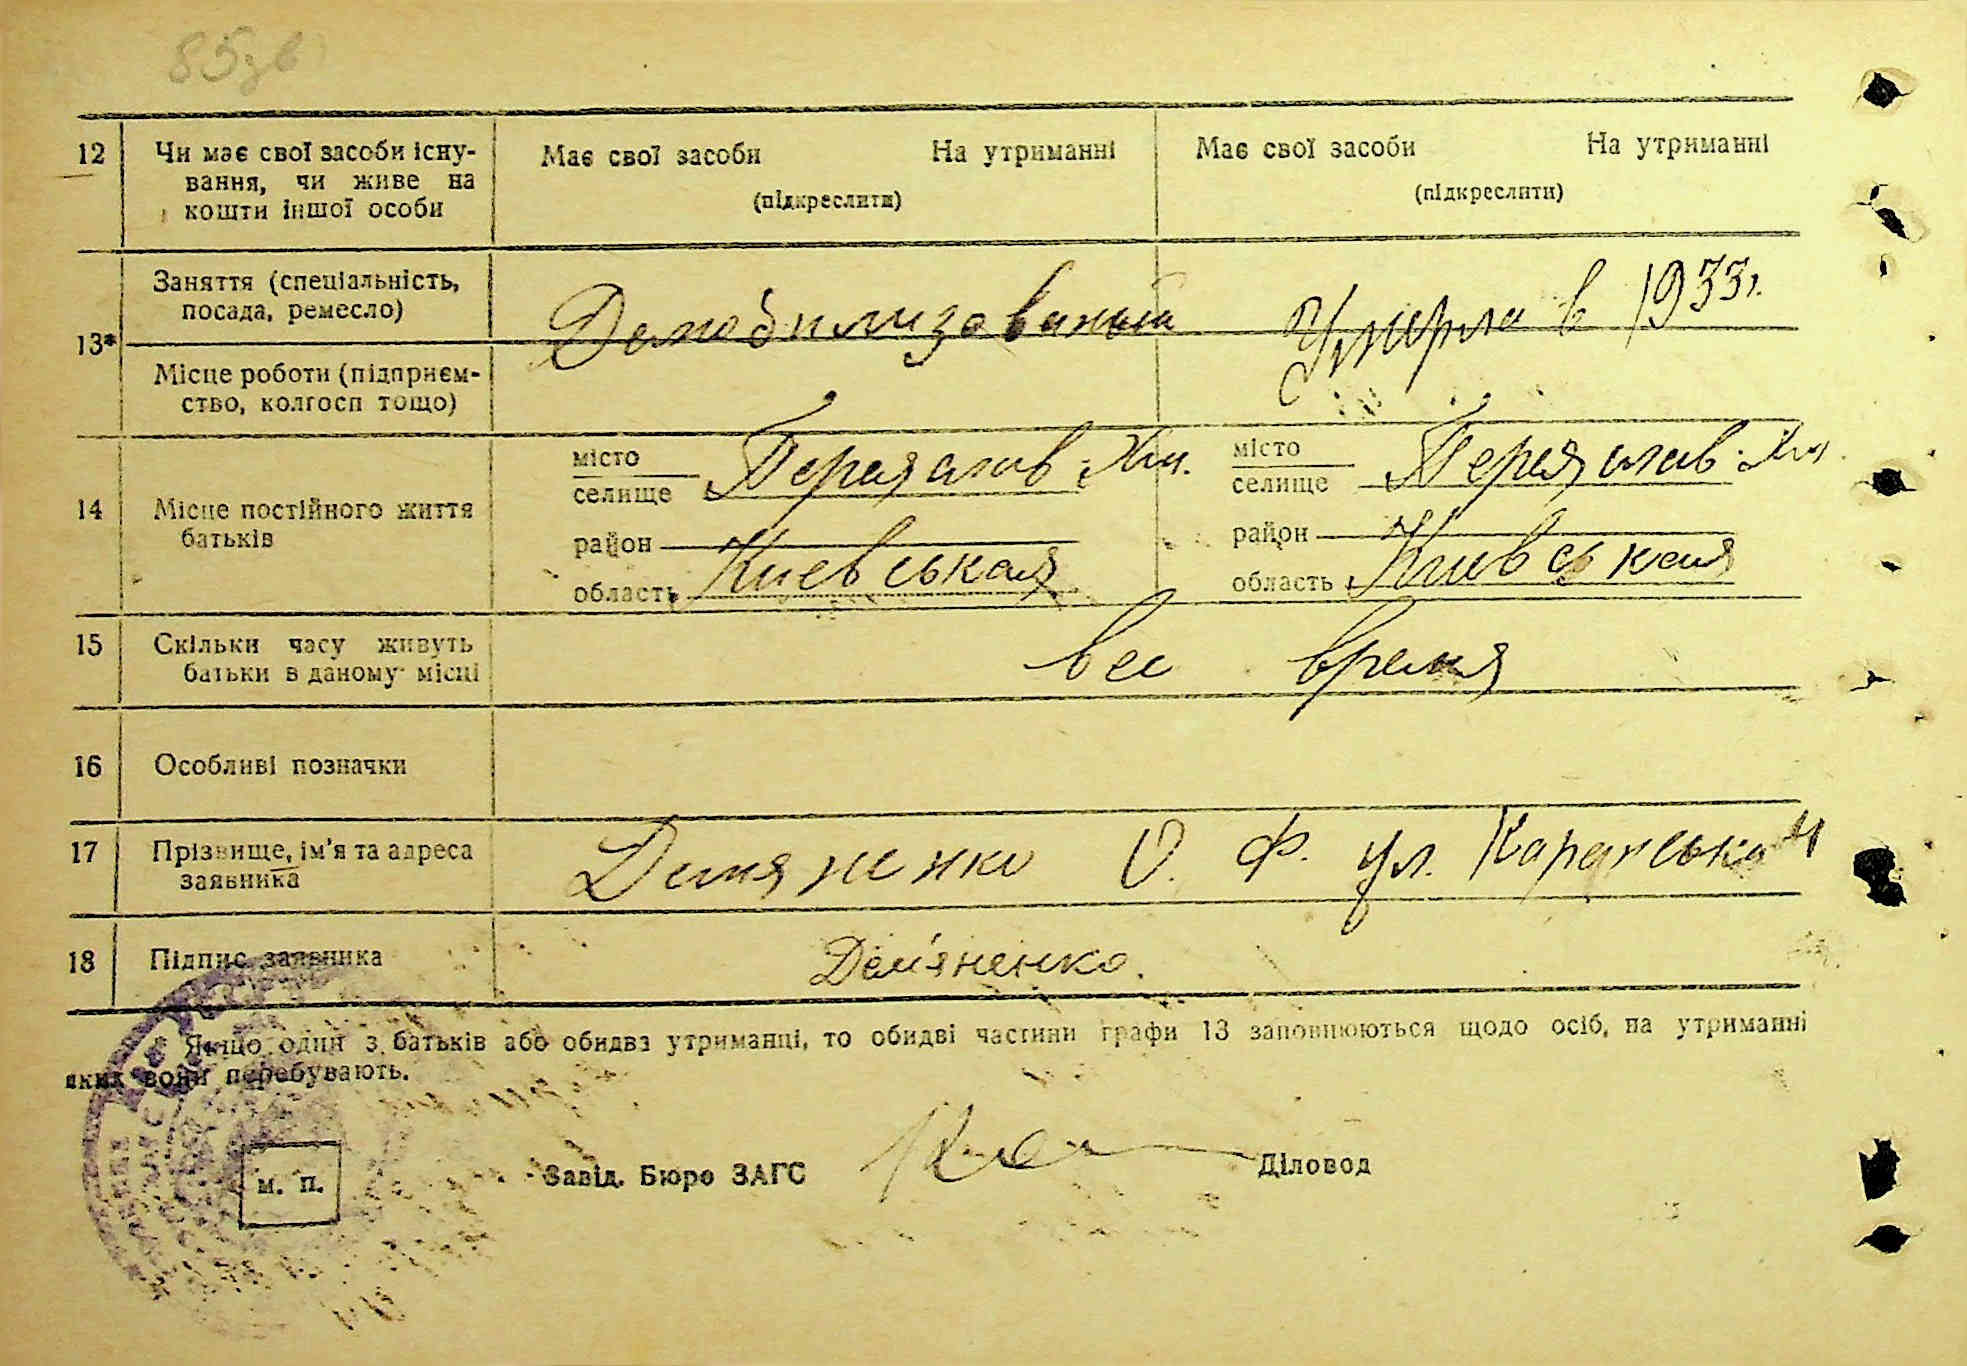 85зв
12 Чи має свої засоби існу-
вання, чи живе на
кошти іншої особи
Має свої засоби На утриманні
(підкреслити)
Має свої засоби На утриманні
(підкреслити)
13*
Заняття (спеціальність,
посада, ремесло)
Демобилизованый
Умерла в 1933г.
Місце роботи (підприєм-
ство, колгосп тощо)
14 Місце постійного життя
батьків
місто
селище Переяслав-Хм.
район
область Киевськая
місто
селище Переяслав-Хм
район
область Киевськая
15 Скільки часу живуть
батьки в даному місці
все время
16 Особливі позначки
17 Прізвище, ім'я та адреса
заявника
Демяненко О. Ф. ул.
18 Підпис заявника
Дем'яненко.
Якщо один з батьків або обидва утриманці, то обидві частини графи 13 заповнюються щодо осіб, на утриманні
яких вони перебувають.
м. п.
Завід. Бюро ЗАГС Діловод